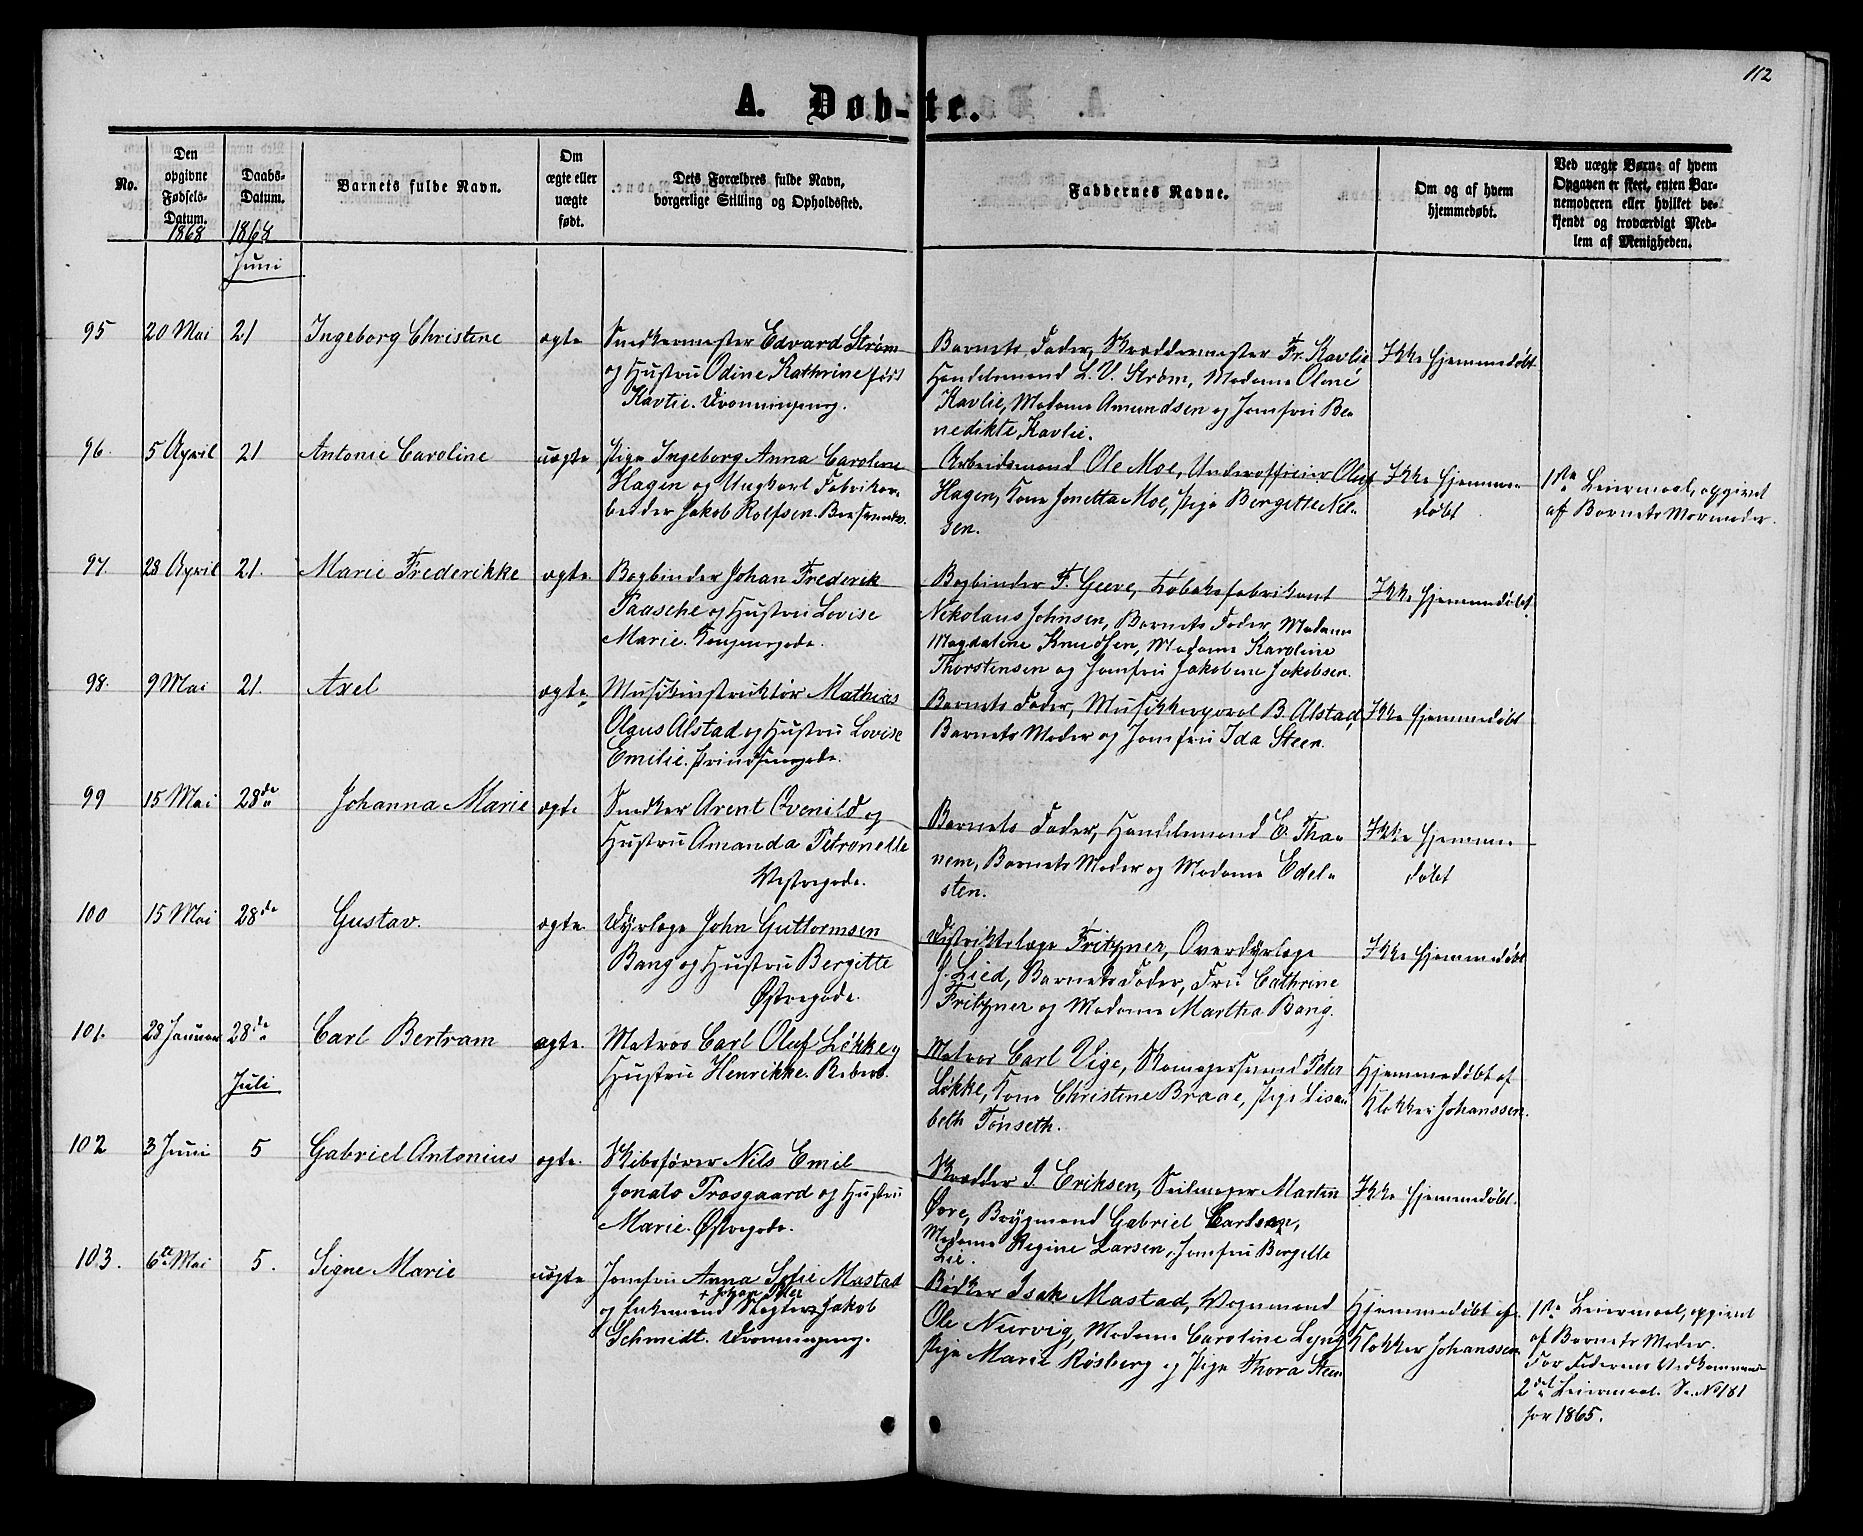 112
A. Døb-te.
No.
Den opgivne Fødsels-Datum.
1868
Daabs-Datum.
1868
Juni
Barnets fulde Navn.
Om ægte eller uægte født.
Dets Forældres fulde Navn,
borgerlige Stilling og Opholdssted.
Faddernes Navne.
Om og af hvem
hjemmedøbt.
Ved uægte Børn: af hvem
Opgaven er skeet, enten Bar-
nemoderen eller hvilket be-
kjendt og troværdigt Med-
lem af Menigheden.
95 20 Mai 21 Ingeborg Christine ægte Snedkermester Edvard Strøm
og Hustru Odine Kathrine født
Kavlie. Dronningensg.
Barnets Fader, Skræddermester Fr. Kavlie
Handelsmand L. V. Strøm, Madame Oline
Kavlie, Madame Amundsen og Jomfru Be-
nedikte Kavlie.
Ikke hjemmedøbt
96. 5 April 21 Antonie Caroline uægte Pige Ingeborg Anna Caroline
Hagen og Ungkarl Fabrikar-
beider Jakob Rolfsen.
Arbeidsmand Ole Moe, Underofficier Oluf
Hagen, Kone Jonetta Moe, Pige Bergitte Nil-
sen.
Ikke hjemme-
døbt
1ste Leiermaal, opgivet
af Barnets Mormoder.
97. 28 April 21. Marie Frederikke ægte Bogbinder Johan Frederik
Paasche og Hustru Lovise
Marie. Kongensgade.
Bogbinder F. Greve, Tobaksfabrikant
Nikolaus Johnsen, Barnets Fader, Madame
Magdalene Knudsen, Madame Karoline
Thorstensen og Jomfru Jakobine Jakobsen.
Ikke hjemmedøbt.
98. 9 Mai 21. Axel ægte Musikinstruktør Mathias
Olaus Alstad og Hustru Lovise
Emilie. Prindsensgade.
Barnets Fader, Musikkorporal B. Alstad,
Barnets Moder og Jomfru Ida Steen.
Ikke hjemmedøbt
99 15 Mai 28de Johanna Marie ægte Snedker Arent Qvenild og
Hustru Amanda Petronelle
Vestregade.
Barnets Fader, Handelsmand E. Tha-
nem, Barnets Moder og Madame Edel-
sten.
Ikke hjemme
døbt
100 15 Mai 28de Gustav. ægte. Dyrlæge John Guttormsen
Bang og Hustru Bergitte
Østregade.
Distriktslæge Fritzner, Overdyrlæge
J. Lied, Barnets Fader, Fru Cathrine
Fritzner og Madame Martha Bang.
Ikke hjemmedøbt
101. 28 Januar 28de Carl Bertram ægte. Matros Carl Oluf Løkke og
Hustru Henrikke.
Matros Carl Vige, Skomagersvend Peter
Løkke, Kone Christine Braae, Pige Lisa-
beth Tønseth.
Hjemmedøbt af
Klokker Johanssen.
Juli
102 3 Juni 5 Gabriel Antonius ægte. Skibsfører Nils Emil
Jonato Prosgaard og Hustru
Marie. Østregade.
Skrædder J Eriksen, Seilmager Martin
Øvre, Brygmand Gabriel Carlsen,
Madame Regine Larsen, Jomfru Bergette
Lie.
Ikke hjemmedøbt.
103. 6te Mai 5. Signe Marie uægte Jomfru Anna Sofie Mastad
+ Johan Peter
og Enkemand Slagter Jakob
Schmidt. Dronningensg.
Bødker Isak Mastad, Vognmand
Ole Nervig, Madame Caroline Lyng
Pige Marie Røsberg og Pige Thora Steen
Hjemmedøbt af
Klokker Johanssen
1ste Leiermaal, opgivet
af Barnets Moder.
For Faderens Vedkommende
2det Leiermaal. Se No 181
for 1865.